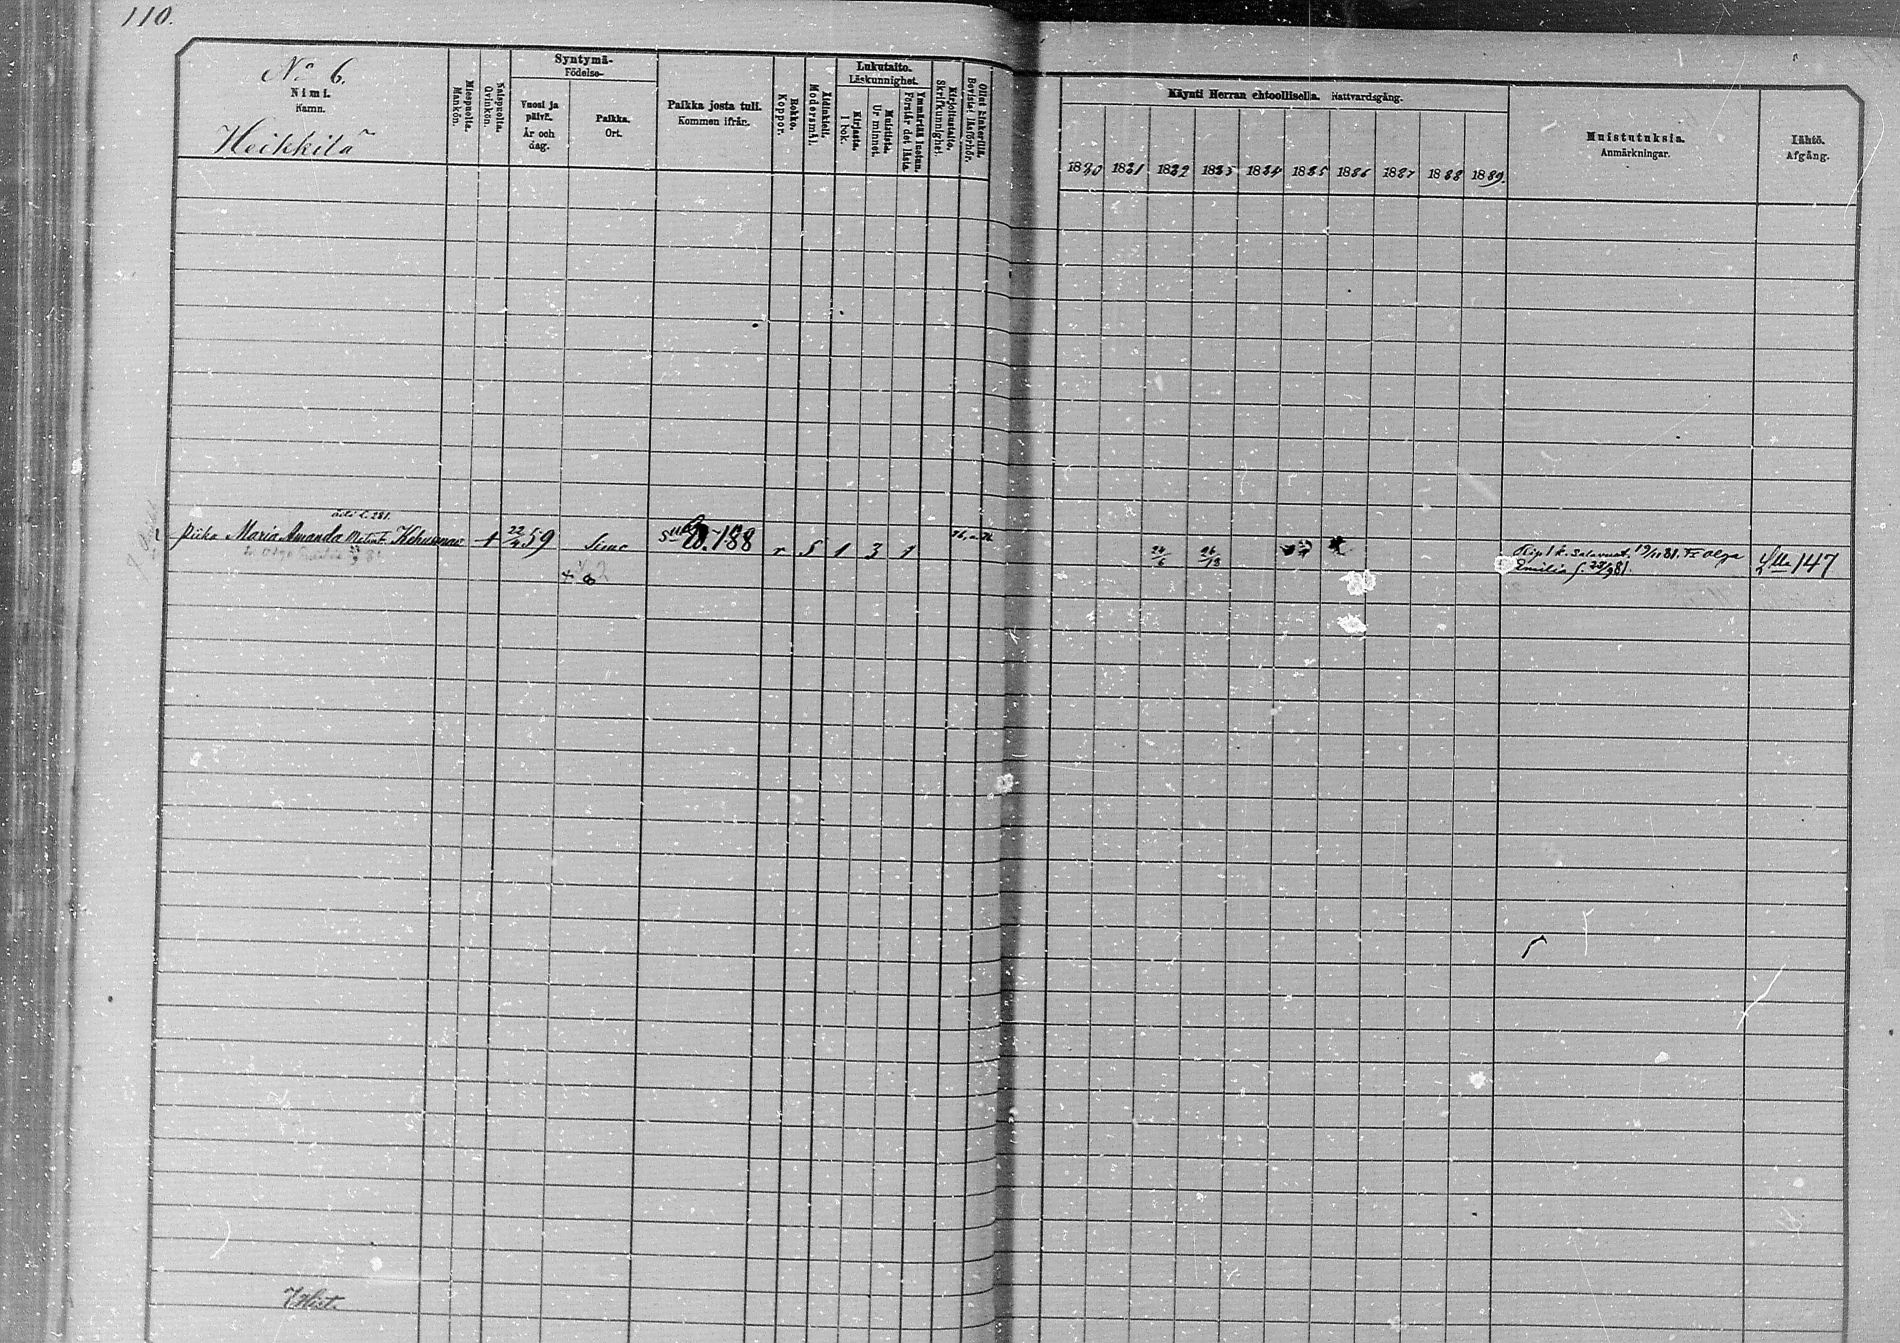 110.
No 6.
Nimi.
Namn.
Heikkilä
Miespuolia.
Mankön.
Naispuolia.
Qvinkön.
Syntymä-
Födelse-
Vuosi ja
päivä.
År och
dag.
Paikka.
Ort.
Paikka josta tuli.
Kommen ifrån.
Rokko.
Koppor.
Äidinkieli.
Modersmål.
Lukutaito.
Läskunnighet.
Kirjasta.
I bok.
Muistista.
Ur minnet.
Ymmärtää luetun.
Förstår det lästa
Kirjoitustaito.
Skrifkunnighet.
Ollut kinkerillä.
Bevistat läsförhör.
Käynti Herran ehtoollisella. Nattvardsgång.
1880 1881 1882 1883 1884 1885 1886 1887 1888 1889.
Muistutuksia.
Anmärkningar.
Lähtö.
Afgång.
Piika Maria Amanda 1 22/4 59 188 r 5 1 3 1
24/6 26/13
19/11 81. Olga 147
Emilia f. 81.